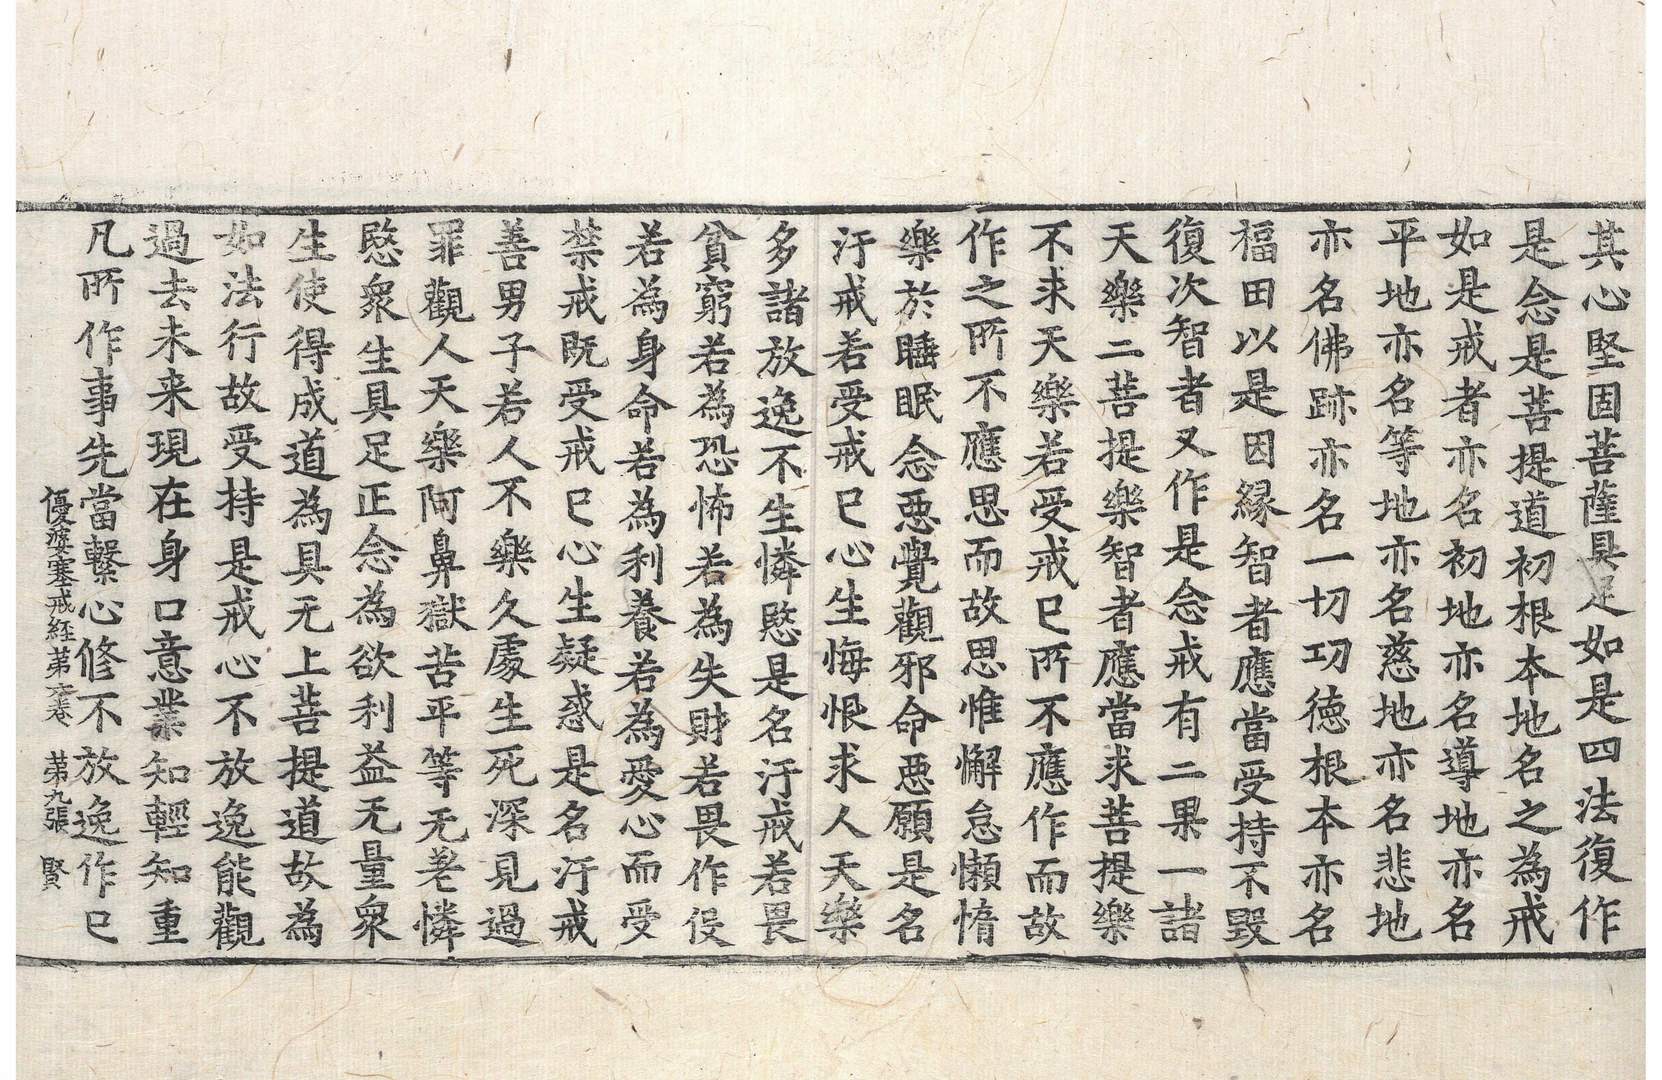 其心堅固菩薩具足如是四法復作
是念是菩提道初根本地名之為戒
如是戒者亦名初地亦名導地亦名
平地亦名等地亦名慈地亦名悲地
亦名佛跡亦名一切功德根本亦名
福田以是因緣智者應當受持不毀
復次智者又作是念戒有二果一諸
天樂二菩提樂智者應當求菩提樂
不求天樂若受戒已所不應作而故
作之所不應思而故思惟懈怠懶惰
樂於睡眠念惡覺觀邪命惡願是名
汙戒若受戒已心生悔恨求人天樂
多諸放逸不生憐愍是名汙戒若畏
貧窮若為恐怖若為失財若畏作役
若為身命若為利養若為愛心而受
禁戒既受戒已心生疑惑是名汙戒
善男子若人不樂久處生死深見過
罪觀人天樂阿鼻獄苦平等无差憐
愍衆生具足正念為欲利益无量衆
生使得成道為具无上菩提道故為
如法行故受持是戒心不放逸能觀
過去未来現在身口意業知輕知重
凡所作事先當繫心修不放逸作已
優婆塞戒経第六卷 第九張 賢